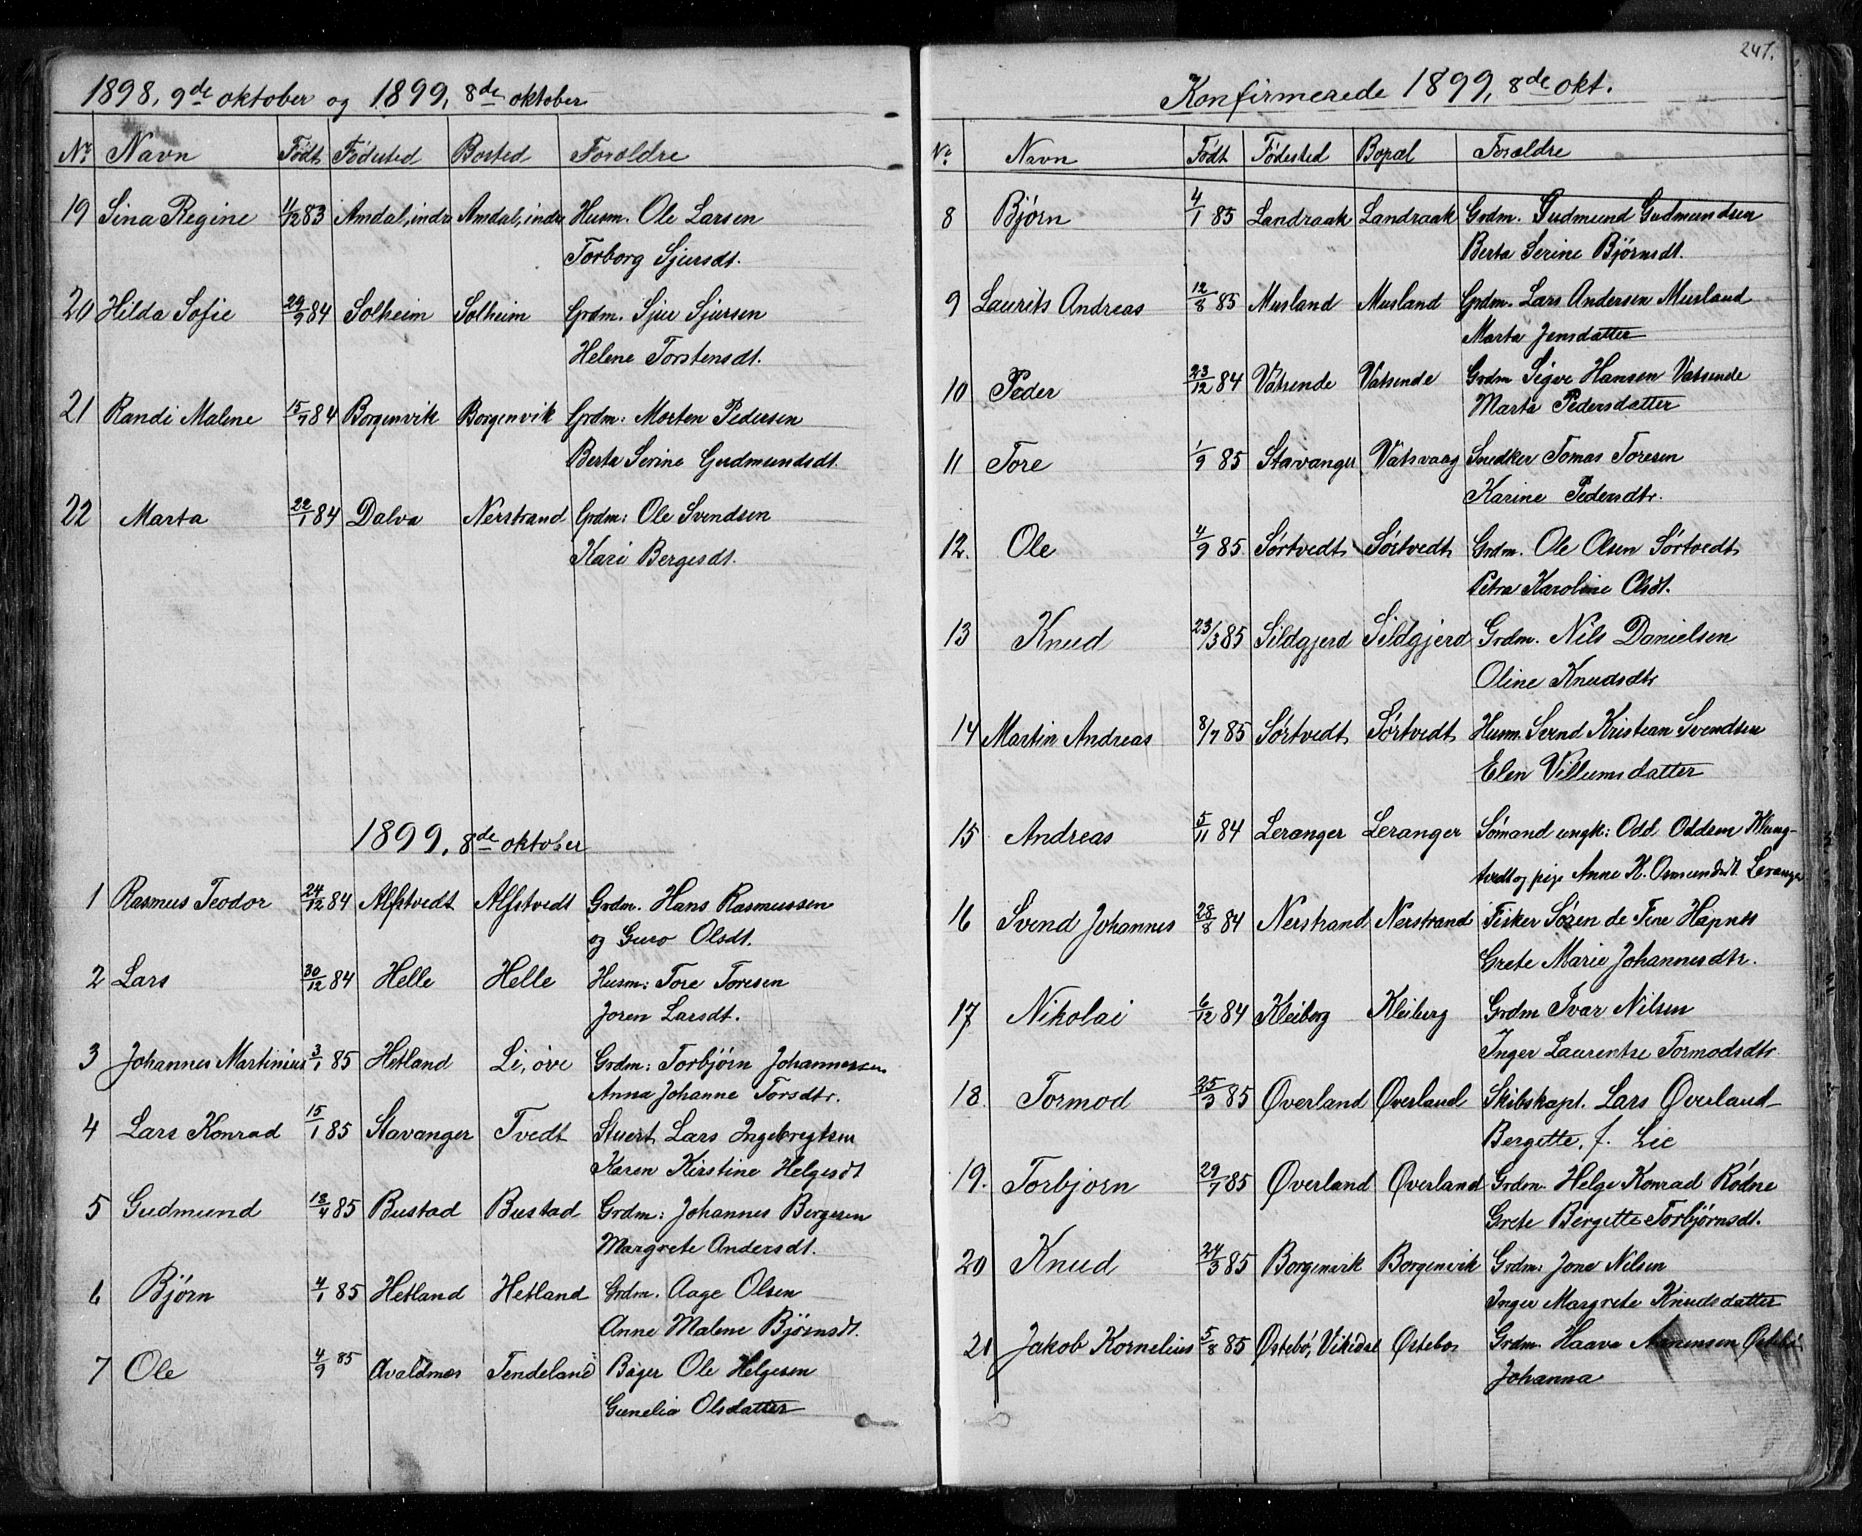 1898, 9de oktober og 1899, 8de oktober
No Navn Født Fødested Bosted Foreldre
19 Sina Regine 11/12 83 Amdal, indre Amdal, indre Husm. Ole Larsen
Torborg Sjursdt.
20 Hilda Sofie 29/9 84 Solheim Solheim Grdm. Sjur Sjursen
Helene Torstensdt.
21 Randi Malene 15/7 84 Borgenvik Borgenvik Grdm. Morten Pedersen
Berta Serine Gudmundsdt.
22 Marta 22/1 84 Dalva Nerstrand Grdm: Ole Svendsen
Kari Bergesdt.
1899, 8de oktober
1 Rasmus Teodor 24/12 84 Alfstvedt Alfstvedt Grdm. Hans Rasmussen
og Guro Olsdt.
2 Lars 30/12 84 Helle Helle Husm: Tore Toresen
Joren Larsdt.
3 Johannes Martinius 3/1 85 Hetland Li, øve Grdm: Torbjørn Johannessen
Anna Johanne Torsdtr.
4 Lars Konrad 15/1 85 Stavanger Tvedt Stuert Lars Ingebregtsen
Karen Kirstine Helgesdt
5 Gudmund 18/4 85 Bustad Bustad Grdm: Johannes Bergesen
Margrete Andersdt.
6 Bjørn 4/1 85 Hetland Hetland Grdm. Aage Olsen
Anne Malene Bjørnsdt.
7 Ole 4/9 85 Avaldsnes Tendeland Bager Ole Helgesen
Gunelia Olsdatter
247.
Konfirmerede 1899, 8de okt.
No Navn Født Fødested Bopæl Forældre
8 Bjørn 4/1 85 Landraak Landraak Grdm. Gudmund Gudmundsen
Berta Serine Bjørnsdt.
9 Laurits Andreas 12/8 85 Musland Musland Grdm. Lars Andersen Musland
Marta Jensdatter
10 Peder 23/12 84 Vatsende Vatsende Grdm Sigve Hansen Vatsende
Marta Pedersdatter
11 Tore 1/9 85 Stavanger Vatsvaag Snedker Tomas Toresen
Karine Pedersdtr.
12. Ole 4/9 85 Sørtvedt Sørtvedt Grdm. Ole Olsen Sørtvedt
Petra Karoline Olsdt.
13 Knud 23/3 85 Sildgjerd Sildgjerd Grdm. Nils Danielsen
Oline Knudsdtr
14 Martin Andreas 8/7 85 Sørtvedt Sørtvedt Husm. Svend Kristian Svendsen
Elen Villumsdatter
15 Andreas 5/11 84 Leranger Leranger Sømand ungk: Odd Oddsen Klung-
tvedt og pige Anne K. Osmundsdt. Leranger
16 Svend Johannes 28/8 84 Nerstrand Nerstrand Fisker Søren de Fine Hapnes
Grete Marie Johannesdtr.
17 Nikolai 6/12 84 Kleiberg Kleiberg Grdm Ivar Nilsen
Inger Laurentse Tormodsdtr
18. Tormod 25/3 85 Øverland Øverland Skibskapt. Lars Øverland
Bergitte, f. Lie
19. Torbjørn 29/7 85 Øverland Øverland Grdm. Helge Konrad Rødne
Grete Bergitte Torbjørnsdt.
20 Knud 24/3 85 Borgenvik Borgenvik Grdm: Jone Nilsen
Inger Margrete Knudsdatter
21 Jakob Kornelius 5/8 85 Østebø, Vikedal Østebø Grdm. Haava Østebø
Johanna